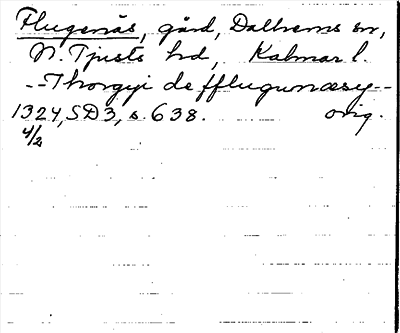 Flugenäs, gård, Dalhems sn,
N. Tjusts hd, Kalmar l.
--Thorgyi de fflugunæsy--
1324, SD3, s. 638. orig.
4/2